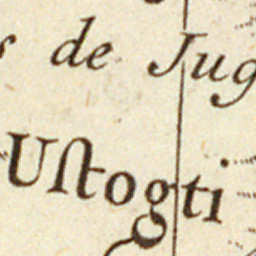 s de Jug
Uſtogti